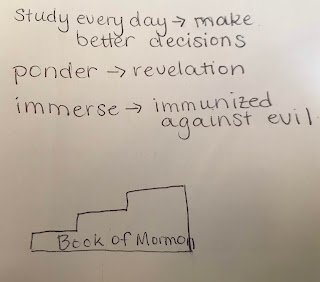 Study every day → make
better decisions
ponder → revelation
immerse → immunized
against evil.
Book of Mormon